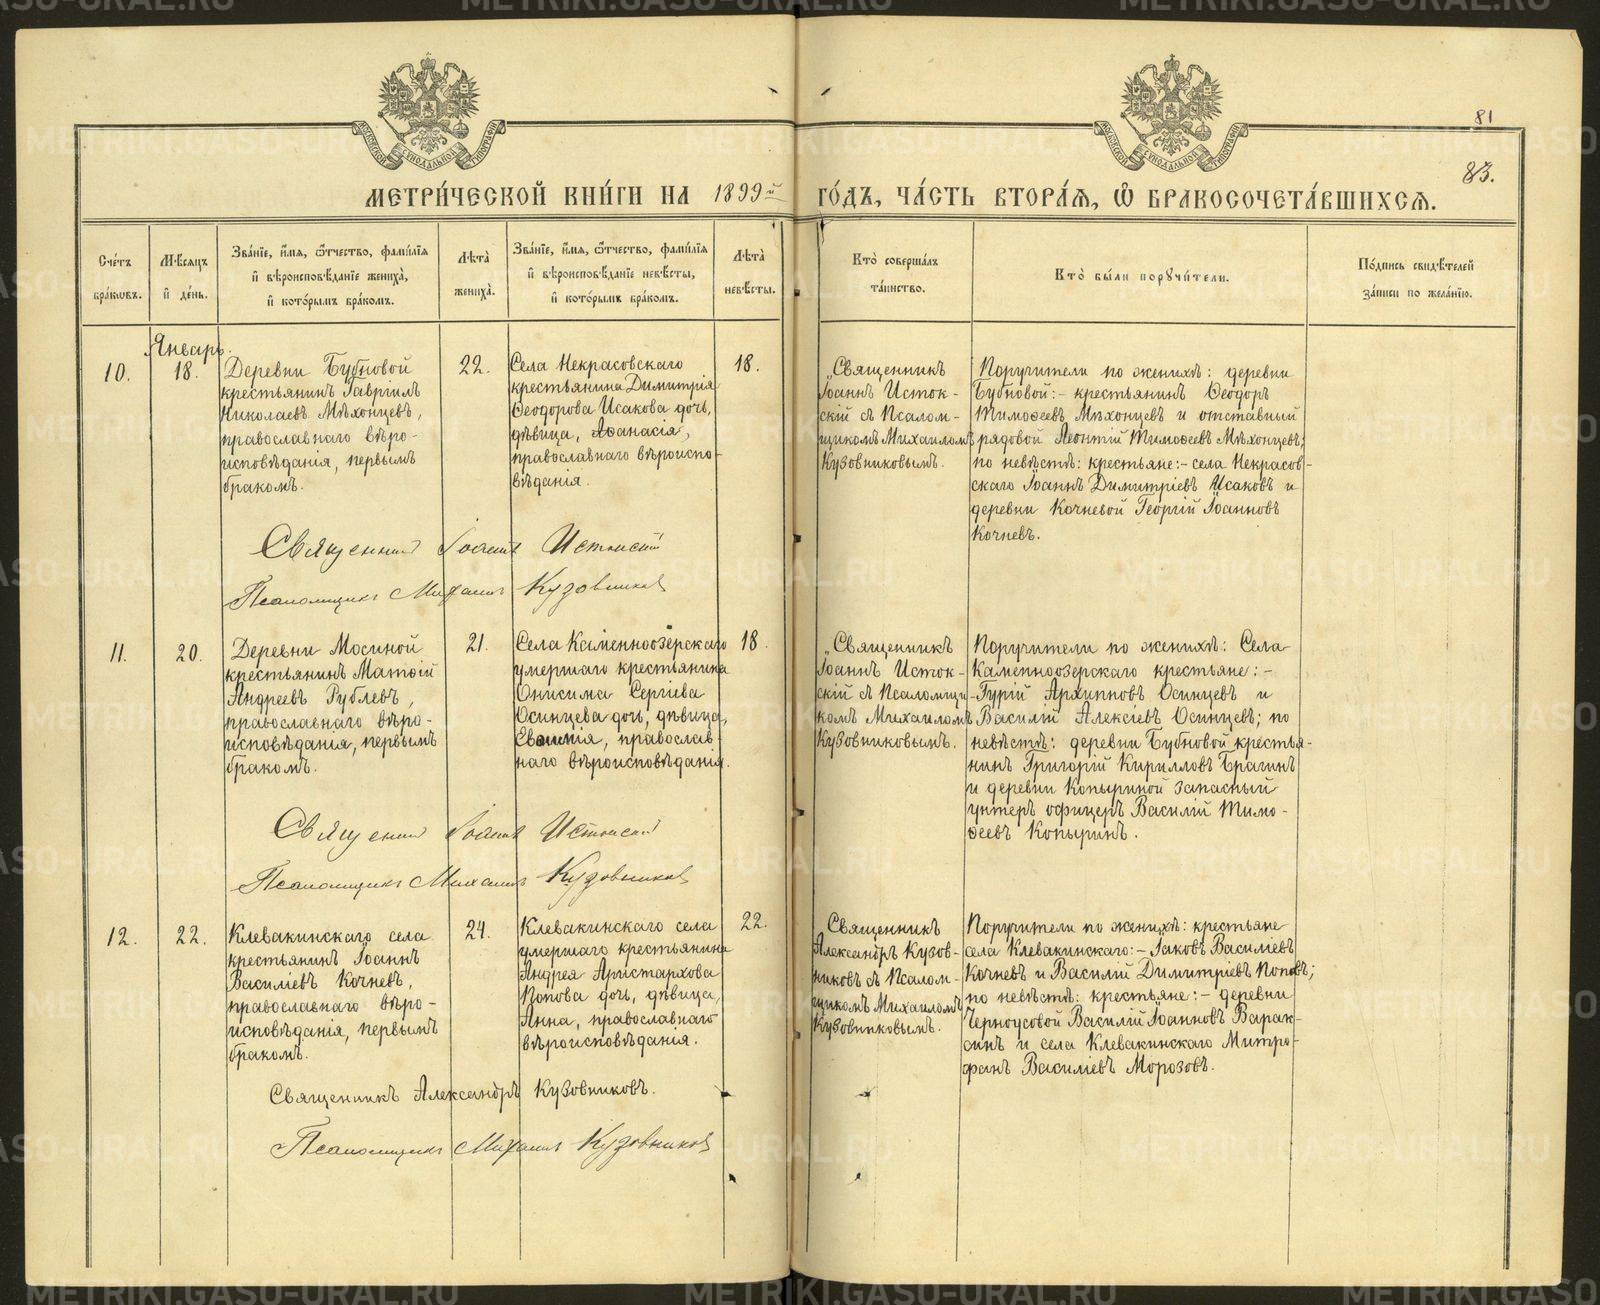 81
83.
МЕТРИ́ЧЕСКОЙ КНИ́ГИ НА 1899й ГО́ДЪ, ЧА́СТЬ ВТОРА́Я, Ѽ БРАКОСОЧЕТА́ВШИХСЯ.
Сче́тъ
бра́ковъ.
Мѣсяцъ
и҆ де́нь.
Зва́нїе, и҆́мя, ѻ҆́тчество, фами́лїя
и҆ вѣроисповѣ́данїе жениха̀,
и҆ кото́рымъ бра́комъ.
Лѣта̀
жениха̀.
Зва́нїе, и҆́мя, ѻ҆́тчество, фами́лїя
и҆ вѣроисповѣ́данїе невѣ́сты,
и҆ кото́рымъ бра́комъ.
Лѣта̀
невѣ́сты.
Кто̀ соверша́лъ
та́инство.
Кто̀ бы́ли порꙋчи́тели.
По́дпись свидѣ́телей
за́писи по жела́нїю.
Январь.
10.
18.
Деревни Бубновой
крестьянинъ Гавріилъ
Николаевъ Мѣхонцевъ,
православнаго вѣро-
исповѣданія, первымъ
бракомъ.
22.
Села Некрасовскаго
крестьянина Димитрія
Ѳеодорова Исакова дочь,
дѣвица, Аѳанасія,
православнаго вѣроиспо-
вѣданія.
18.
Священникъ
Іоаннъ Исток-
скій съ Псалом-
щикомъ Михаиломъ
Кузовниковымъ.
Поручители по женихѣ: деревни
Бубновой:- крестьянинъ Ѳеодоръ
Тимоѳеевъ Мѣхонцевъ и отставный
рядовой Леонтій Тимоѳеевъ Мѣхонцевъ;
по невѣстѣ: крестьяне:- села Некрасов-
скаго Іоаннъ Димитріевъ Исаковъ и
деревни Кочневой Георгій Іоанновъ
Кочневъ.
Священникъ Іоаннъ Истокскій
Псаломщикъ Михаилъ Кузовниковъ
11.
20.
Деревни Мосиной
крестьянинъ Матѳій
Андреевъ Рублевъ,
православнаго вѣро-
исповѣданія, первымъ
бракомъ.
21.
Села Каменноозерскаго
умершаго крестьянина
Онисима Сергіева
Осинцева дочь, дѣвица,
Евѳимія, православ-
наго вѣроисповѣданія.
18.
Священникъ
Іоаннъ Исток-
скій съ Псаломщи-
комъ Михаиломъ
Кузовниковымъ.
Поручители по женихѣ: Села
Каменноозерскаго крестьяне:-
Гурій Архипповъ Осинцевъ и
Василій Алексіевъ Осинцевъ; по
невѣстѣ: деревни Бубновой крестья-
нинъ Григорій Кирилловъ Брагинъ
и деревни Копыриной запасный
унтеръ офицеръ Василій Тимо-
ѳеевъ Копыринъ.
Священникъ Іоаннъ Истокскій
Псаломщикъ Михаилъ Кузовниковъ
12.
22.
Клевакинскаго села
крестьянинъ Іоаннъ
Василіевъ Кочневъ,
православнаго вѣро-
исповѣданія, первымъ
бракомъ.
24.
Клевакинскаго села
умершаго крестьянина
Андрея Аристархова
Попова дочь, дѣвица,
Анна, православнаго
вѣроисповѣданія.
22.
Священникъ
Александръ Кузов-
никовъ съ Псалом-
щикомъ Михаиломъ
Кузовниковымъ.
Поручители по женихѣ: крестьяне
села Клевакинскаго:- Іаковъ Василіевъ
Кочневъ и Василій Димитріевъ Поповъ;
по невѣстѣ: крестьяне:- деревни
Черноусовой Василій Іоанновъ Варак-
синъ и села Клевакинскаго Митро-
фанъ Василіевъ Морозовъ.
Священникъ Александръ Кузовниковъ.
Псаломщикъ Михаилъ Кузовниковъ